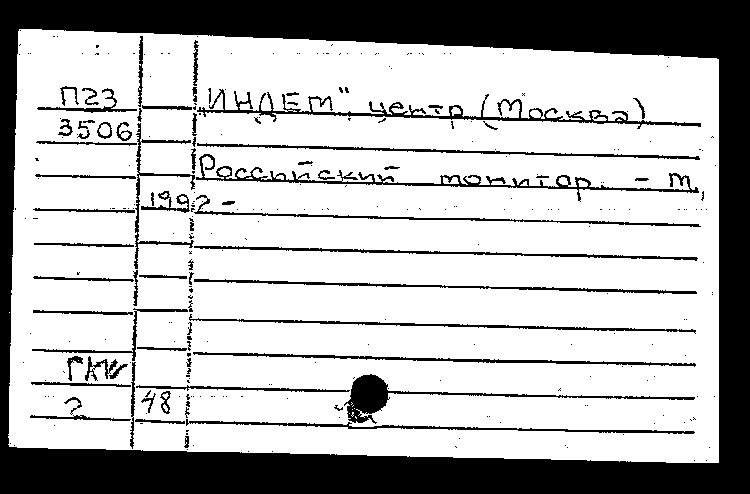 П23 „ИНДЕМ", центр (Москва)
3506
Российский монитор. - М.,
1992 -
ГКП
2 48